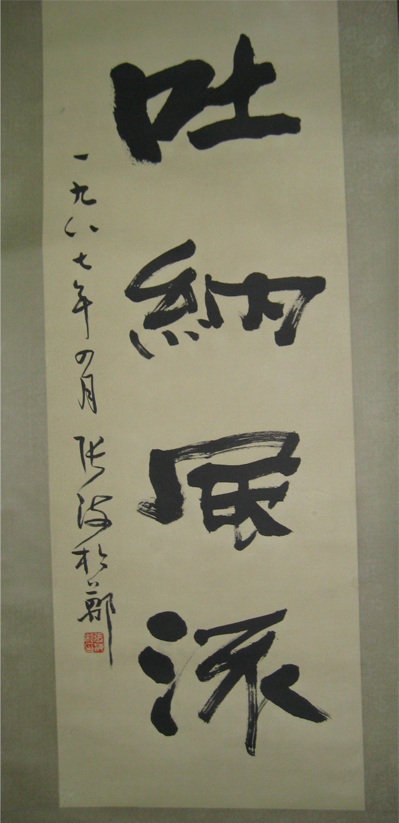 吐納展派
一九八七年四月张海於鄭